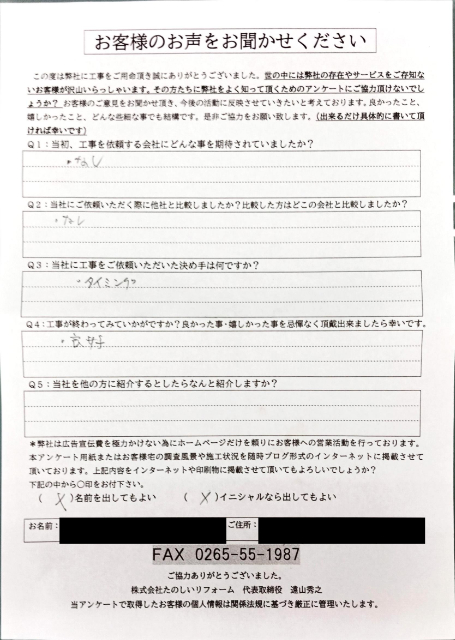 お客様のお声をお聞かせください
この度は弊社に工事をご用命頂き誠にありがとうございました。世の中には弊社の存在やサービスをご存知な
いお客様が沢山いらっしゃいます。その方たちに弊社をよく知って頂くためのアンケートにご協力頂けないでし
ょうか？お客様のご意見をお聞かせ頂き、今後の活動に反映させていきたいと考えております。良かったこと、
嬉しかったこと、どんな些細な事でも結構です。是非ご協力をお願い致します。（出来るだけ具体的に書いて頂
ければ幸いです）
Q1：当初、工事を依頼する会社にどんな事を期待されていましたか？
・なし
Q2：当社にご依頼いただく際に他社と比較しましたか？比較した方はどこの会社と比較しましたか？
・なし
Q3：当社に工事をご依頼いただいた決め手は何ですか？
・タイミング
Q4：工事が終わってみていかがですか？良かった事・嬉しかった事を忌憚なく頂戴出来ましたら幸いです。
・良好
Q5：当社を他の方に紹介するとしたらなんと紹介しますか？
＊弊社は広告宣伝費を極力かけない為にホームページだけを頼りにお客様への営業活動を行っております。
本アンケート用紙またはお客様宅の調査風景や施工状況を随時ブログ形式のインターネットに掲載させて
頂いております。上記内容をインターネットや印刷物に掲載させて頂いてもよろしいでしょうか？
下記の中から○印をお付下さい。
（ X ）名前を出してもよい （ X ）イニシャルなら出してもよい
お名前： ご住所：
FAX 0265-55-1987
ご協力ありがとうございました。
株式会社たのしいリフォーム 代表取締役 遠山秀之
当アンケートで取得したお客様の個人情報は関係法規に基づき厳正に管理いたします。